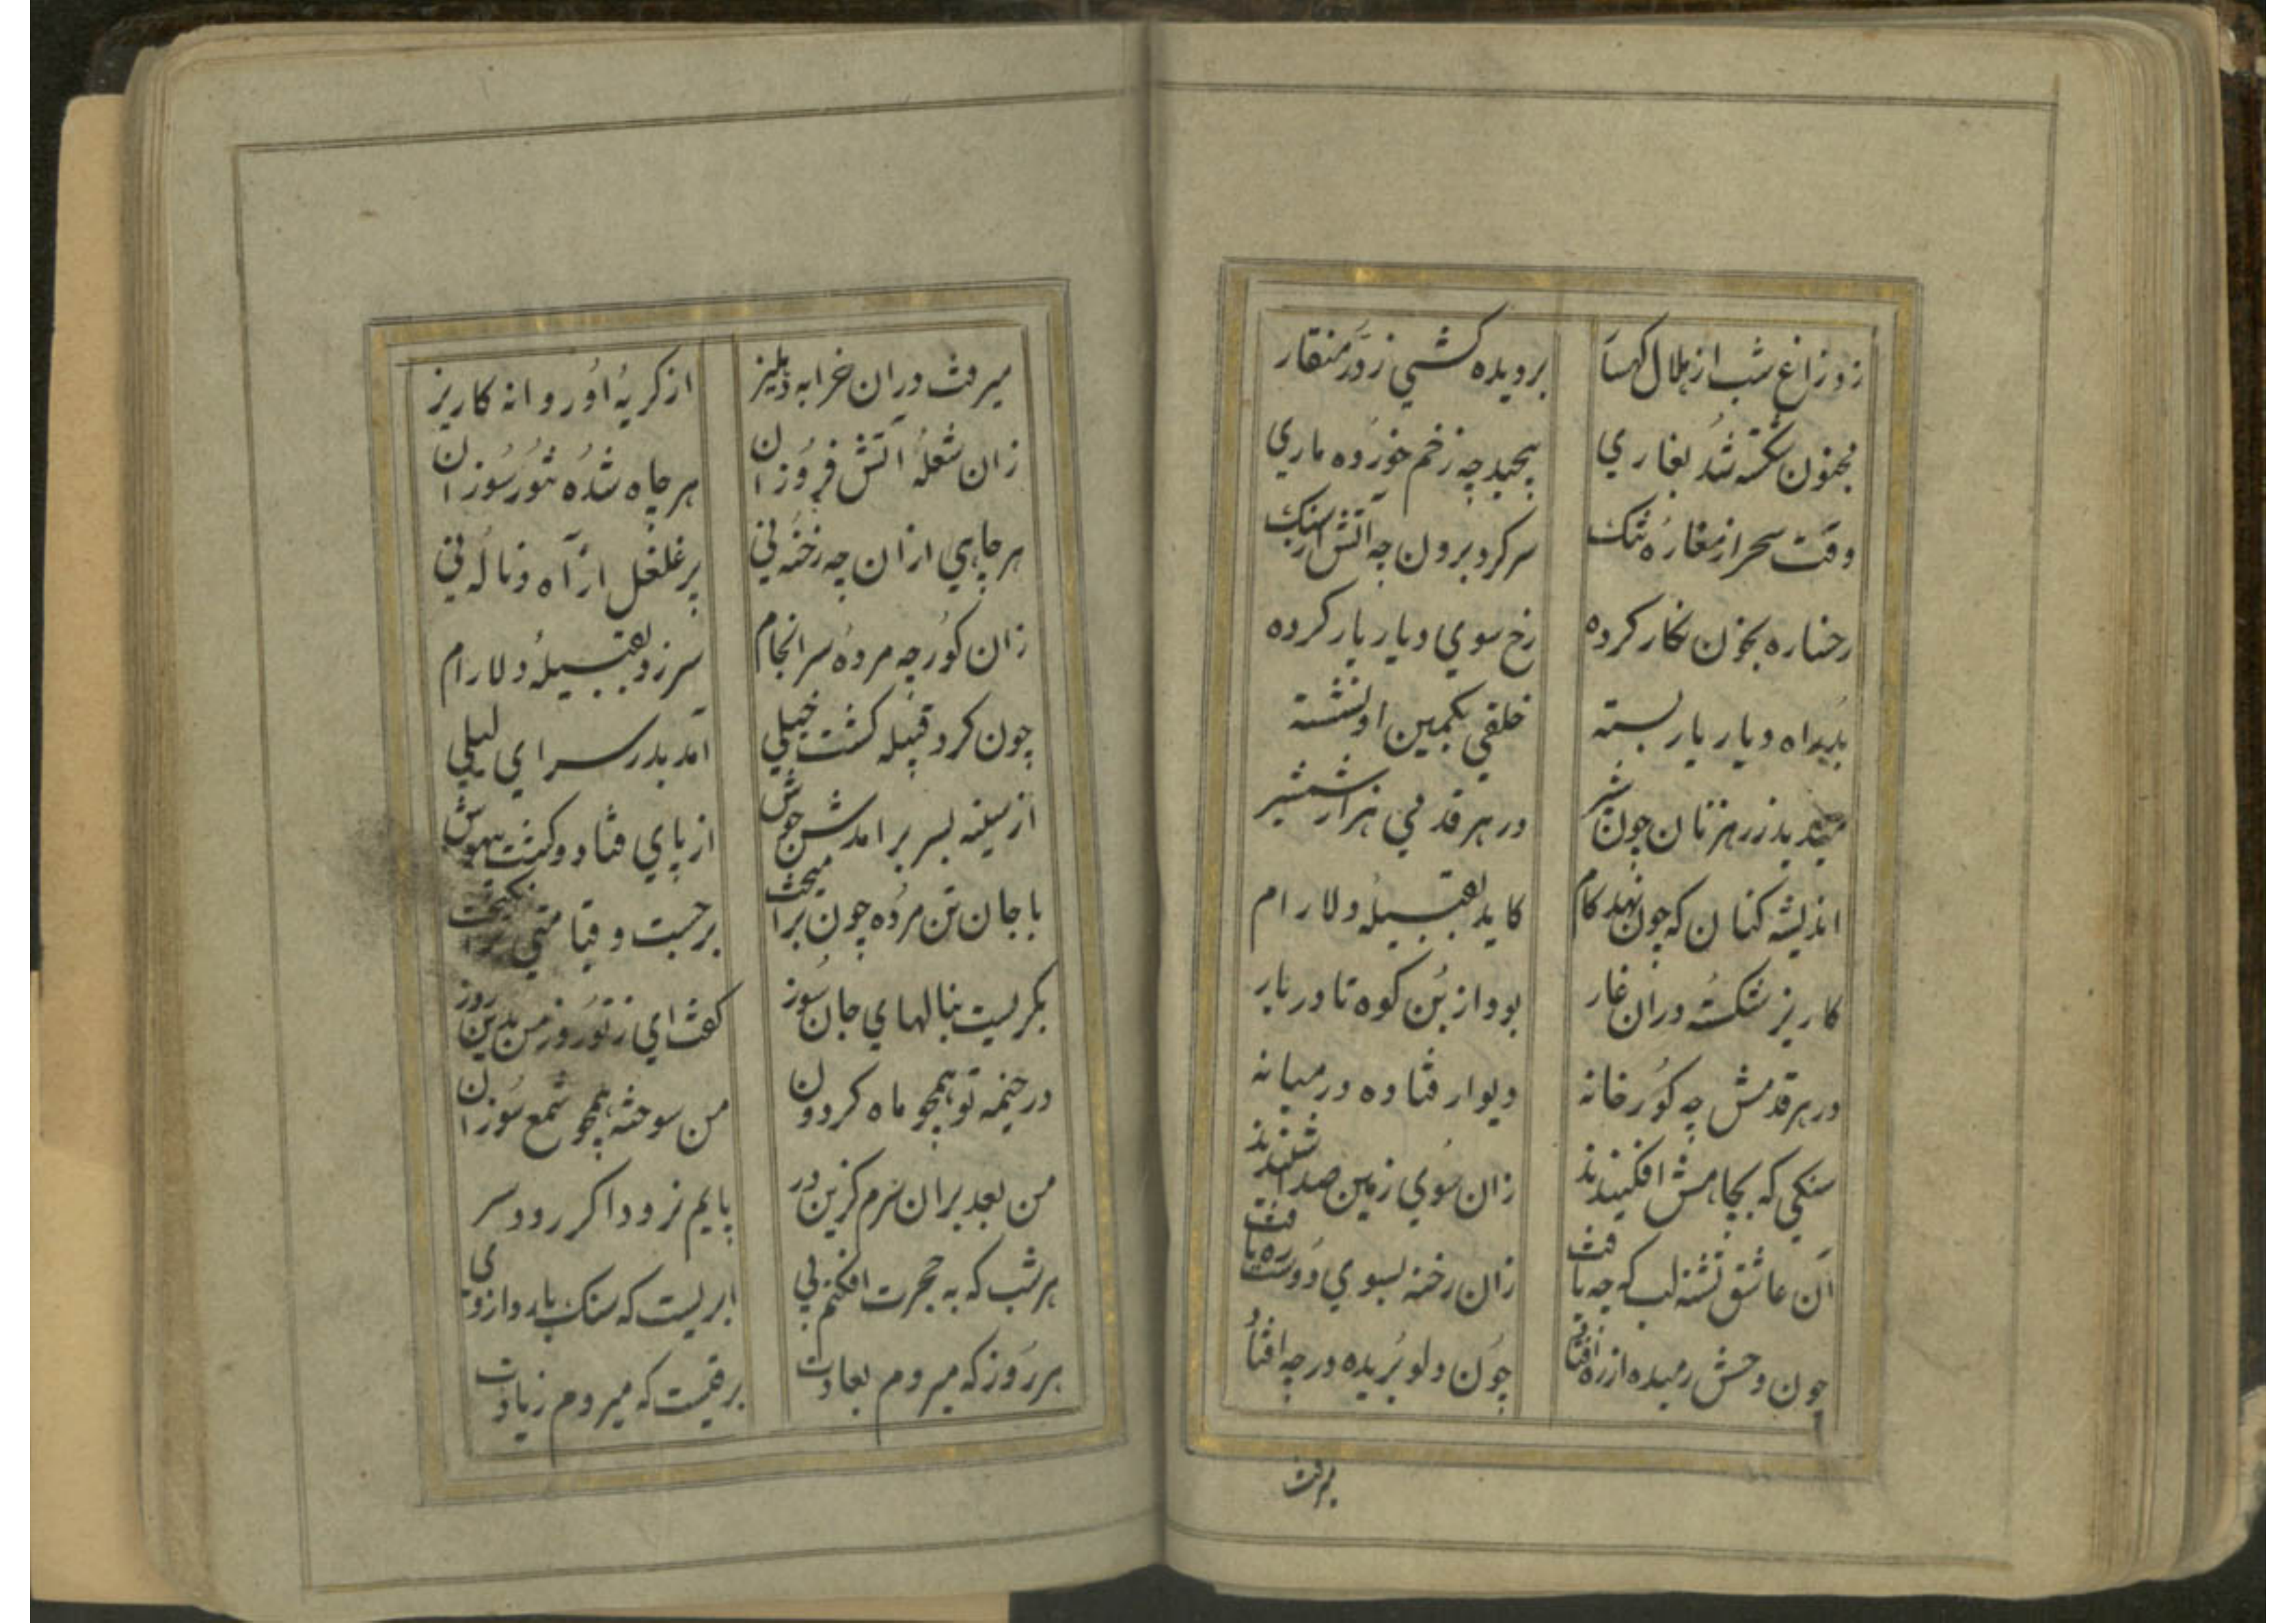 زد زاغ شب از هلال کهسار بر دیده کشی ز در منقار
مجنون شکسته شد بغاری پیچید چه زخم خورده ماری
وقت سحر از مغاره تنک سر کرد برون چه آتش از سنک
رخساره بخون نکار کرده رخ سوی دیار یار کرده
بدید راه دیار یار بسته خلقی بکمین او نشسته
میدید ز رهزنان چون شیر در هر قدمی هزار شمشیر
اندیشه کنان که چون نهد کام کاید بقبیله دلارام
کاریز شکسته در آن غار بود از بن کوه تا در یار
در هر قدمش چه کور خانه دیوار فتاده در میانه
سنکی که بچاهش افکنیدند زان سوی زمین صدا شنیدند
آن عاشق تشنه لب که چه یافت زان رخنه بسوی دوست ره یافت
چون وحش رمیده از ره افتاد چون دلو بریده در چه افتاد
میرفت
میرفت در آن خرابه دهلیز از کریه او روانه کاریز
زان شعله آتش فروزان هر چاه شده تنور سوزان
هر چاهی از آن چه رخنه نی پر غلغل از آه و ناله نی
زان کور چه مرده سرانجام سر زد بقبیله دلارام
چون کرد قبیله کشت خیلی آمد بدر سرای لیلی
از سینه بسر بر آمدش جوش از پای فتاد و کشت بیهوش
با جان تن مرده چون بر آمیخت برجست و قیامتی بر انکیخت
بکریست بنالهای جان سوز کفت ای ز تو روز من بدین روز
در خیمه تو همچو ماه کردون من سوخته همچو شمع سوزان
من بعد بر آن سرم کزین در پایم نرود اکر رود سر
هر شب که به حجرت افکنم پی ابریست که سنک بارد از وی
هر روز که میروم بعادت برقیست که میروم زیادت